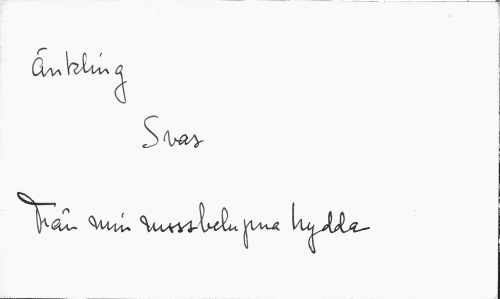 Änkling
Svar
Från min mossbelupna hydda